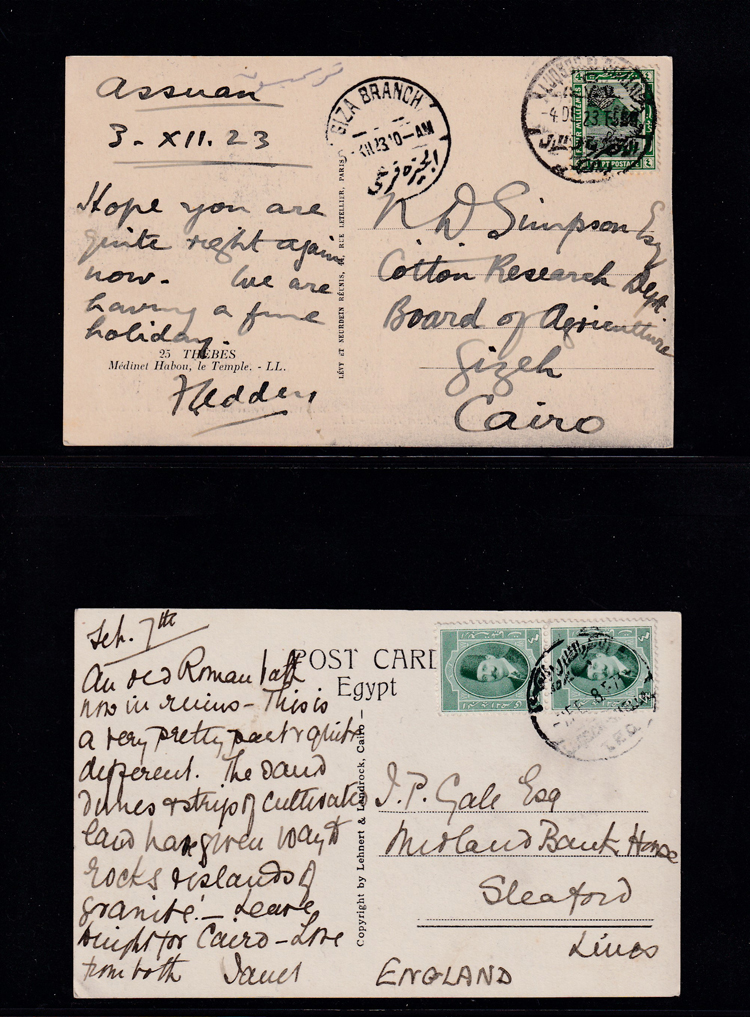 Assuan
3. XII. 23
Hope you are
quite right again
now. We are
having a fine
holiday.
25 THEBES
Médinet Habou, le Temple. - LL.
LÉVY ET NEURDEIN RÉUNIS, 44, RUE LETELLIER, PARIS
GIZA BRANCH
23 10-AM
الجيزة فرعى
-4 DE 23
FOUR MILLIEMES
EGYPT POSTAGE
N D Simpson Esq
Cotton Research Dept.
Board of Agriculture
Gizeh
Cairo
Feb. 7th
An old Roman bath
now in ruins - This is
a very pretty part & quite
different. The sand
dunes & strip of cultivated
land have given way to
rocks & islands of
granite! - Leave
tonight for Cairo - Love
from both Janet
POST CARD
Egypt
Copyright by Lehnert & Landrock, Cairo -
T.P.O.
J. P. Gale Esq
Midland Bank House
Sleaford
Lincs
ENGLAND